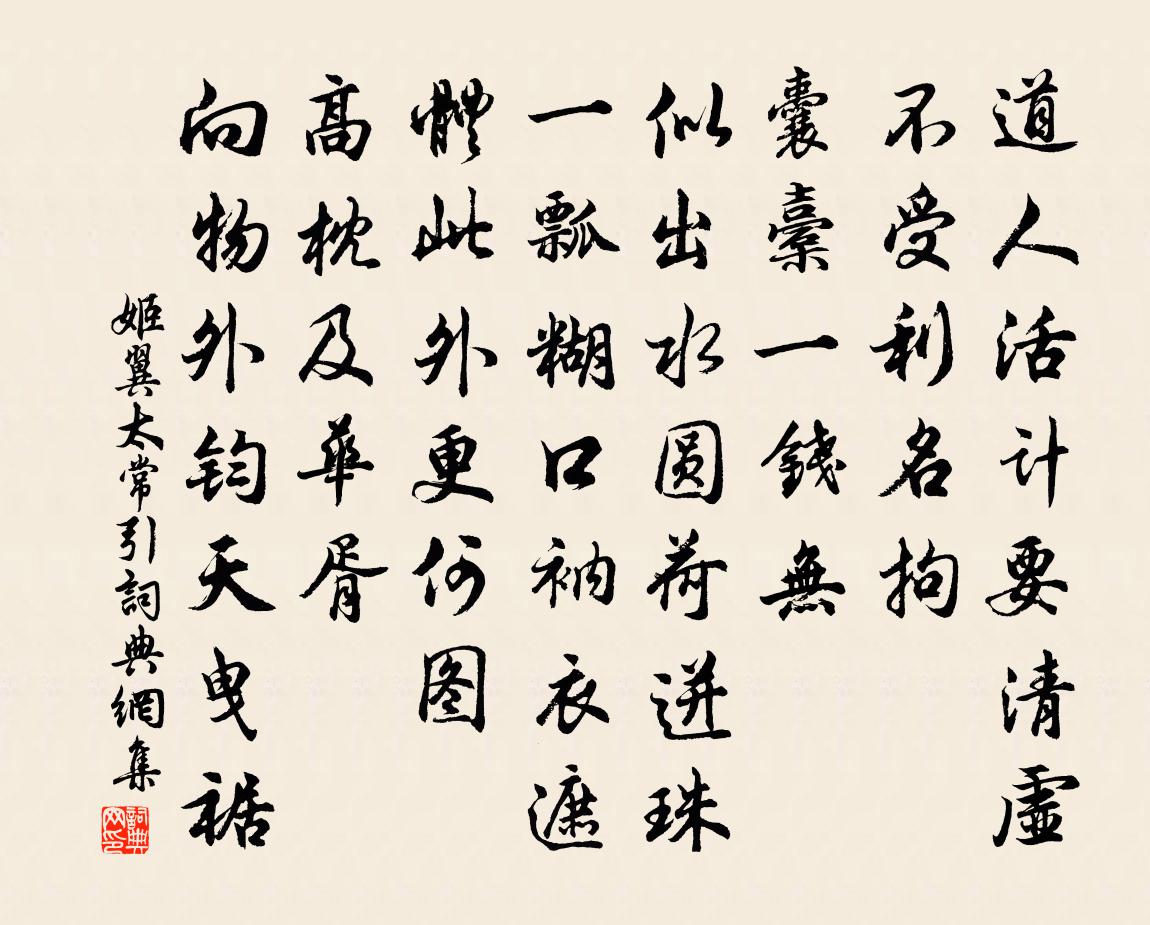 道人活计要清虚
不受利名拘
囊橐一錢無
似出水圆荷迸珠
一瓢糊口衲衣遮
體此外更何图
高枕及華胥
向物外钧天曳裾
姬翼太常引詞典網集
詞典网印